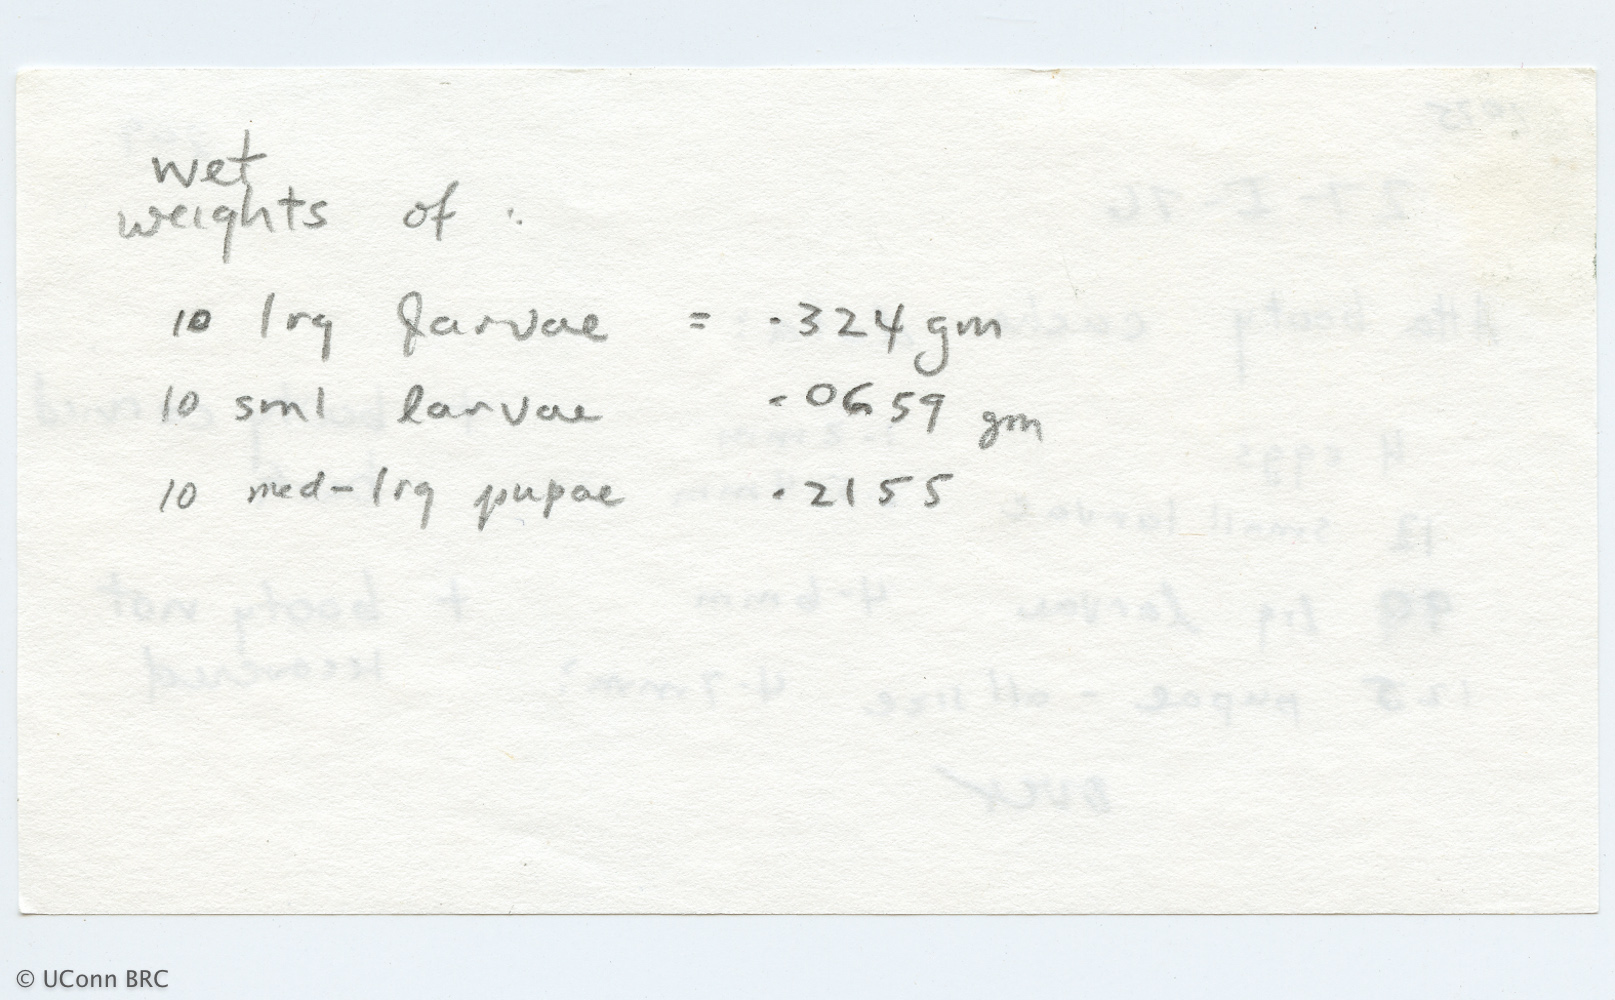 wet
weights of :
10 lrg larvae = .324 gm
10 sml larvae .0659 gm
10 med-lrg pupae .2155
© UConn BRC